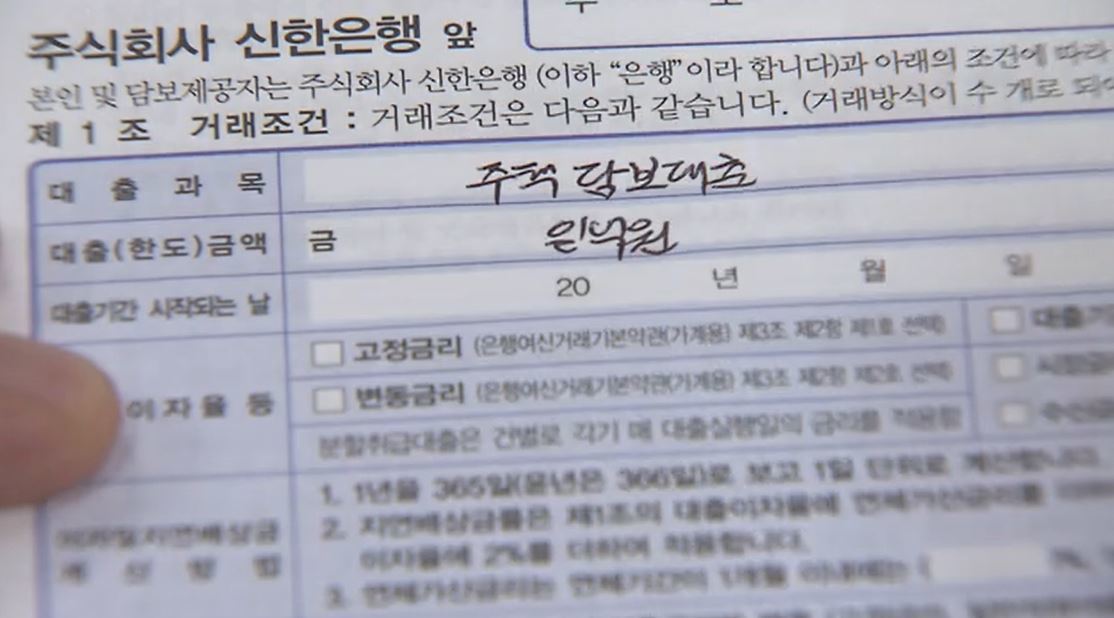 주식회사 신한은행 앞
본인 및 담보제공자는 주식회사 신한은행 (이하 “은행”이라 합니다)과 아래의 조건에 따라
제 1 조 거래조건 : 거래조건은 다음과 같습니다. (거래방식이 수 개로
대 출 과 목 주택 담보대출
대출(한도)금액 금 일억원
대출기간 시작되는 날 20 년 월 일
이 자 율 등
고정금리 (은행여신거래기본약관(가계용) 제3조 제2항 제1호 선택)
변동금리 (은행여신거래기본약관(가계용) 제3조 제2항 제2호 선택)
분할취급대출은 건별로 각기 매 대출실행일의 금리를 적용함
1. 1년을 365일(윤년은 366일)로 보고 1일 단위로 계산합니다.
2. 지연배상금률은 제1조의 대출이자율에 연체가산금리를
이자율에 2%를 더하여 적용합니다.
3. 연체가산금리는 연체기간이 1개월 이내에는 (